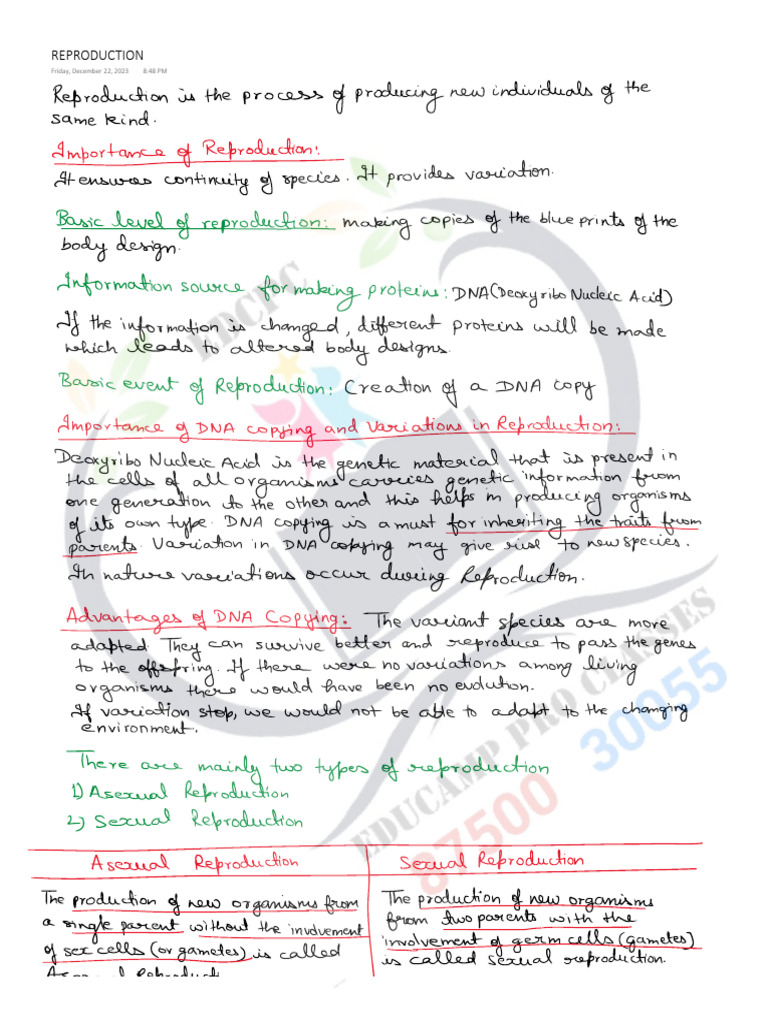 REPRODUCTION
Friday, December 22, 2023 8:48 PM
Reproduction is the process of producing new individuals of the
same kind.
Importance of Reproduction:
It ensures continuity of species. It provides variation.
Basic level of reproduction: making copies of the blue prints of the
body design.
Information source for making proteins: DNA(Deoxyribo Nucleic Acid)
If the information is changed, different proteins will be made
which leads to altered body designs.
Basic event of Reproduction: Creation of a DNA copy
Importance of DNA copying and Variations in Reproduction:
Deoxyribo Nucleic Acid is the genetic material that is present in
the cells of all organisms carries genetic information from
one generation to the other and this helps in producing organisms
of its own type. DNA copying is a must for inheriting the traits from
parents. Variation in DNA copying may give rise to new species.
In nature variations occur during Reproduction.
Advantages of DNA Copying: The variant species are more
adapted. They can survive better and reproduce to pass the genes
to the offspring. If there were no variations among living
organisms there would have been no evolution.
If variation stop, we would not be able to adapt to the changing
environment.
There are mainly two types of reproduction
1) Asexual Reproduction
2) Sexual Reproduction
Asexual Reproduction
The production of new organisms from
a single parent without the involvement
of sex cells (or gametes) is called
Sexual Reproduction
The production of new organisms
from two parents with the
involvement of germ cells (gametes)
is called sexual reproduction.
EDCPC
EDUCAMP PRO CLASSES
87500 30055